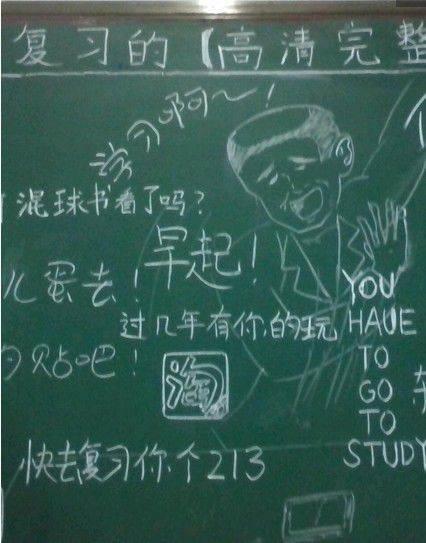 复习的【高清完整
学习啊~!
混球书看了吗?
早起!
儿蛋去!
过几年有你的玩
的贴吧!
淘
快去复习你个213
YOU
HAVE
TO
GO
TO
STUDY